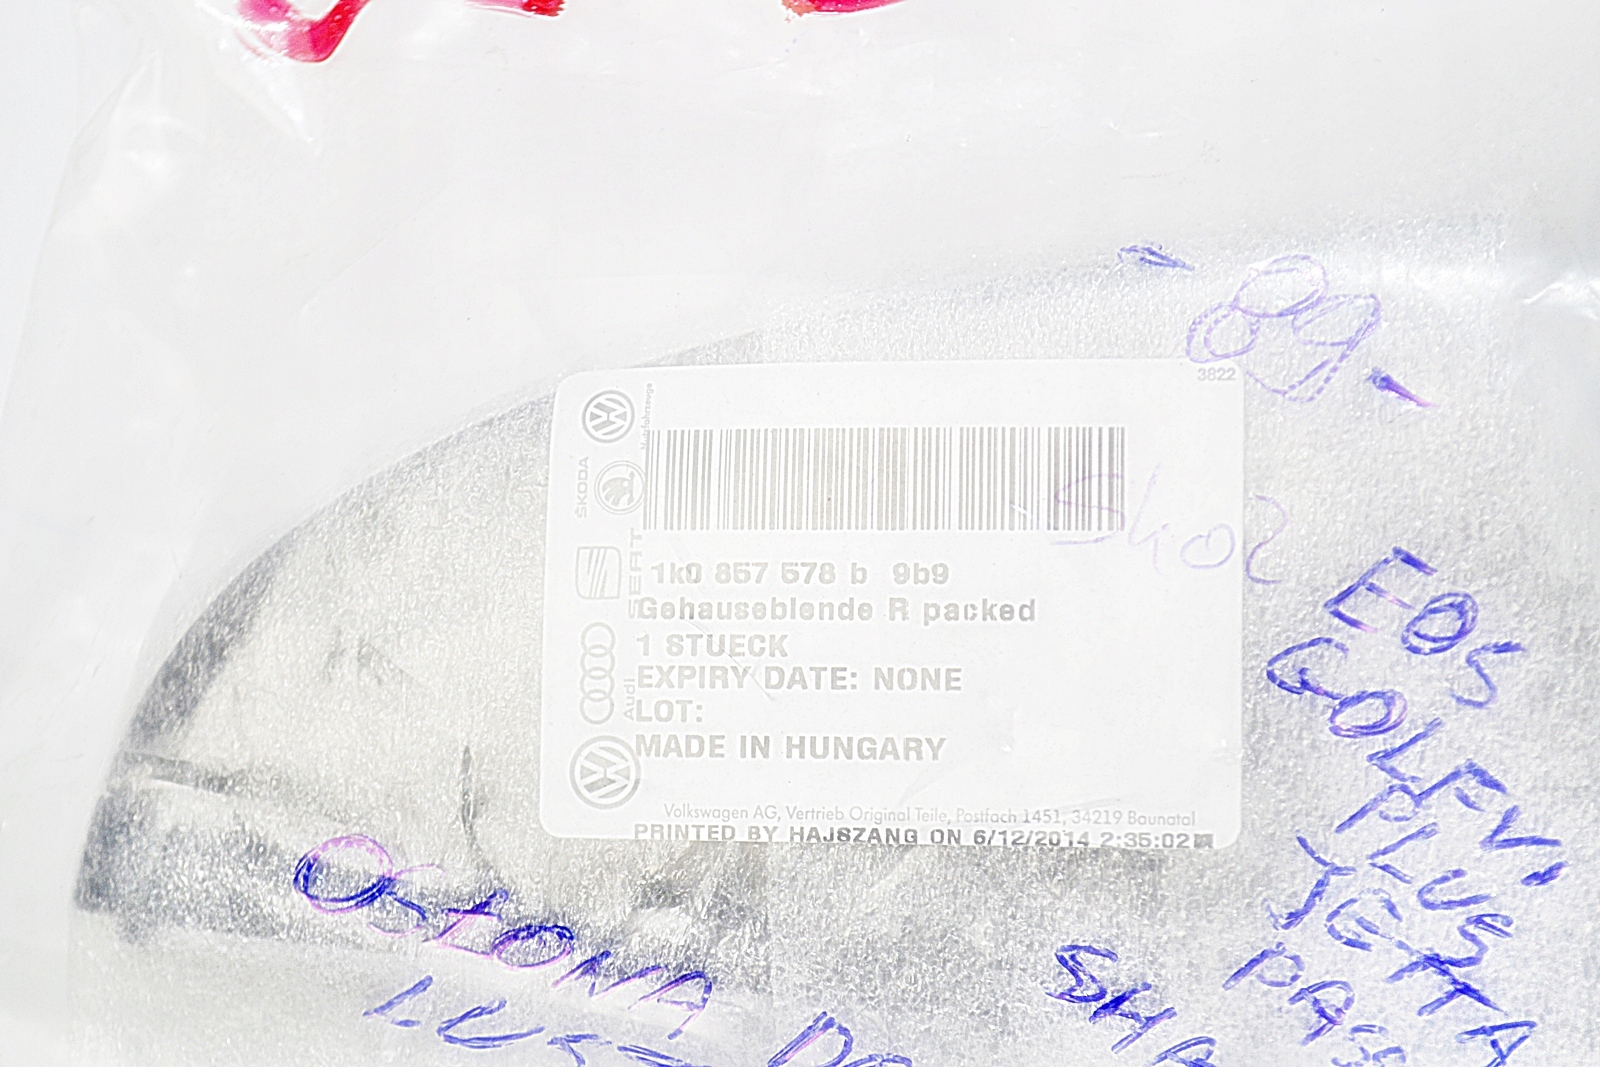 -09-
3822
Nutzfahrzeuge
ŠKODA
SEAT
Audi
5402
1k0 857 578 b 9b9
Gehauseblende R packed
1 STUECK
EXPIRY DATE: NONE
LOT:
MADE IN HUNGARY
Volkswagen AG, Vertrieb Original Teile, Postfach 1451, 34219 Baunatal
PRINTED BY HAJSZANG ON 6/12/2014 2:35:02
EOS
GOLF V,
PLUS
JETTA
PASS
SHA
OSŁONA
LUS